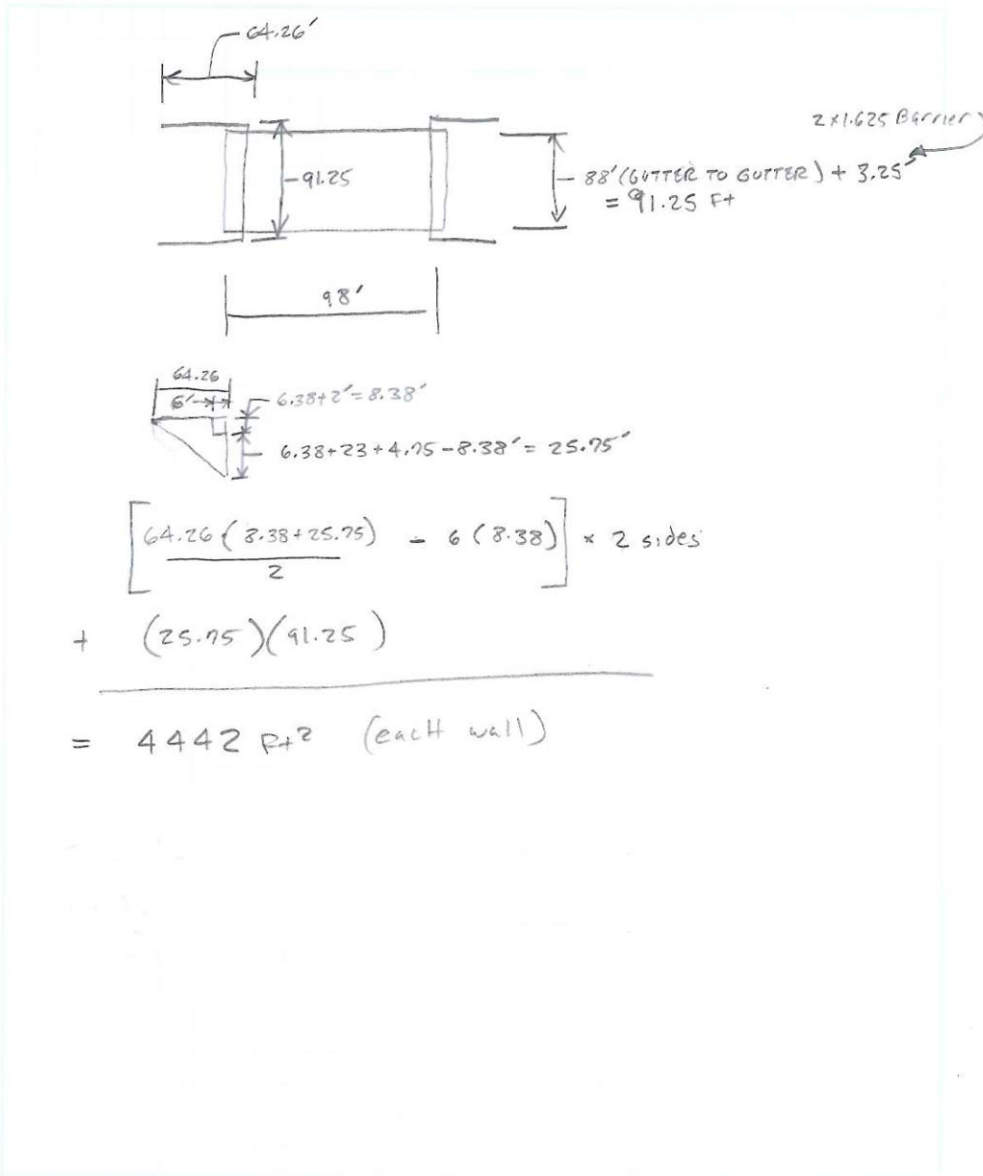 64.26'
2 x 1.625 Barrier
91.25
88' (GUTTER TO GUTTER) + 3.25'
= 91.25 Ft
98'
64.26
6'
6.38+2' = 8.38'
6.38+23+4.75-8.38' = 25.75'
[64.26 (8.38+25.75) / 2 - 6 (8.38)] x 2 sides
+ (25.75)(91.25)
= 4442 Ft² (eacH wall)